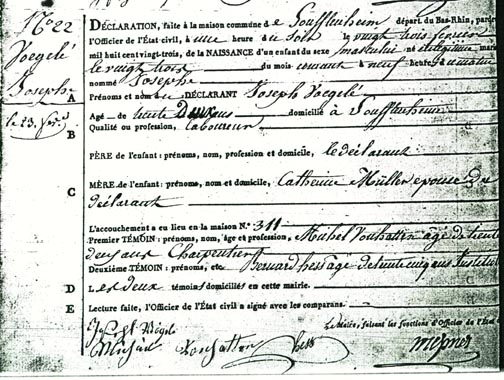 N.o 22
Voegelé
Joseph
le 23. fév.
DÉCLARATION, faite à la maison commune de Soufflenheim départ. du Bas-Rhin, pard
l'Officier de l'État civil, à une heure du soir le vingt trois février
mil huit cent vingt-trois, de la NAISSANCE d'un enfant du sexe masculin né
le vingt trois du mois courant à neuf heures du matin
nommé Joseph
A Prénoms et nom du DÉCLARANT Joseph Voegelé
Agé de trente Deux ans domicilié à Soufflenheim
B Qualité ou profession, laboureur
PÈRE de l'enfant: prénoms, nom, profession et domicile, le déclarant
C MÈRE de l'enfant: prénoms, nom et domicile, Catherine Müller épouse du
déclarant
L'accouchement a eu lieu en la maison N.o 311
Premier TÉMOIN: prénoms, nom, âge et profession, Michel âgé de trente
deux ans Charpentier
Deuxième TÉMOIN: prénoms, etc. Bernard hess âgé de trente cinq ans Institut
D Les deux témoins domiciliés en cette mairie.
E Lecture faite, l'Officier de l'État civil a signé avec les comparans.
Le Maire, faisant les fonctions d'Officier de l'État
hess